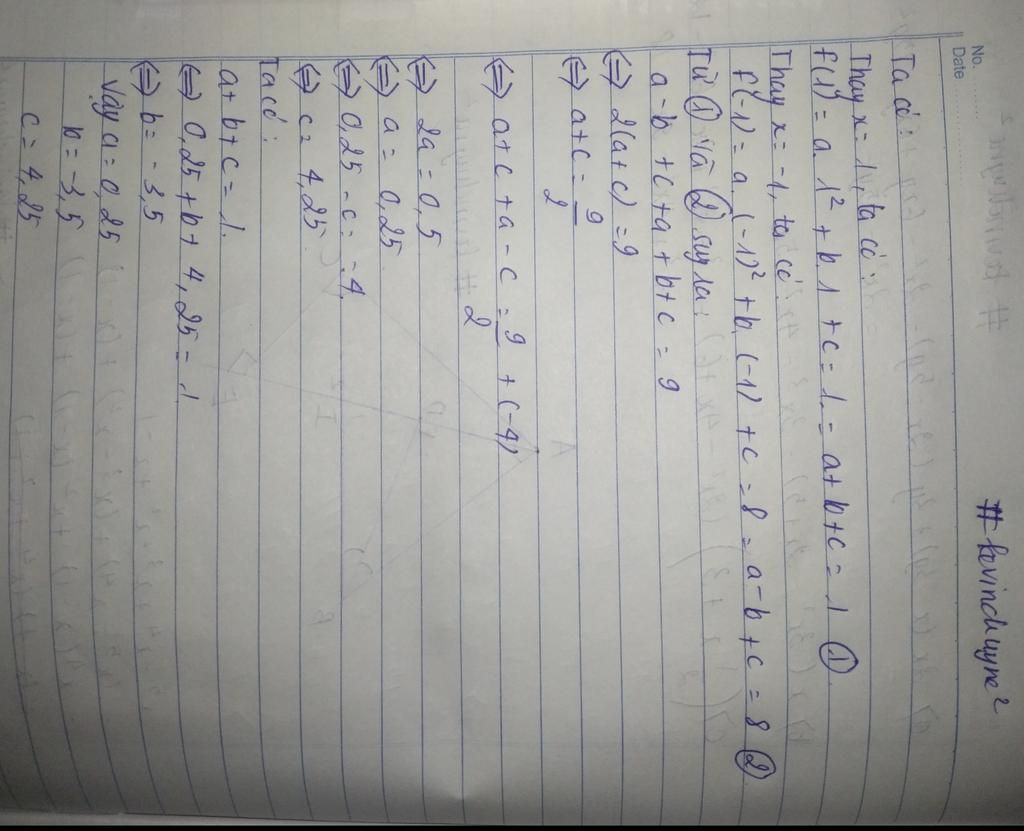 # kevinchuyne2
No.
Date
Ta có:
Thay x = 1, ta có:
f(1) = a. 1² + b. 1 + c = 1. = a + b + c = 1 ①
Thay x = -1, ta có:
f(-1) = a. (-1)² + b. (-1) + c = 8 = a - b + c = 8 ②
Từ ① và ② suy ra:
a - b + c + a + b + c = 9
⇔ 2(a+c) = 9
⇔ a + c = 9/2
⇔ a + c + a - c = 9/2 + (-4)
⇔ 2a = 0,5
⇔ a = 0,25
⇔ 0,25 - c = -4.
⇔ c = 4,25.
Ta có:
a + b + c = 1.
⇔ 0,25 + b + 4,25 = 1
⇔ b = -3,5
Vậy a = 0,25
b = -3,5
c = 4,25